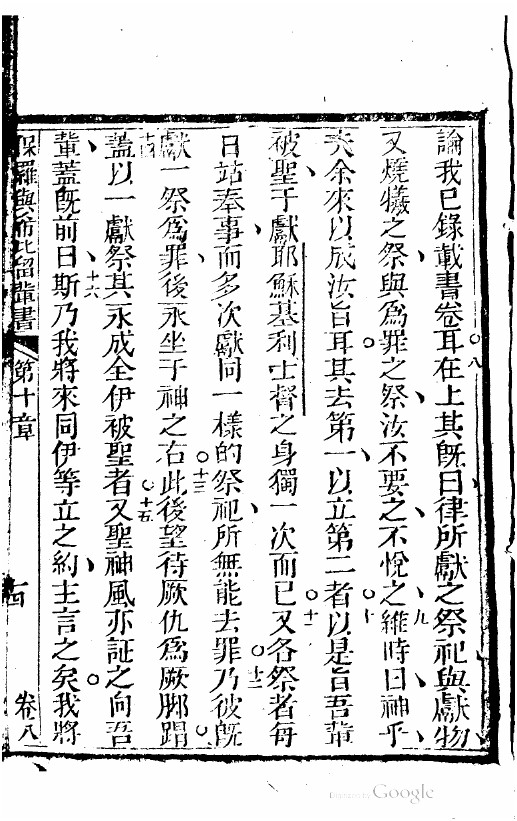 論我已錄載書卷耳在上其旣曰律所獻之祭祀與獻物
又燒犧之祭與為罪之祭汝不要之不悅之維時曰神乎
夫余來以成汝旨耳其去第一以立第二者以是旨吾輩
被聖于獻耶穌基利士督之身獨一次而已又各祭者每
日站奉事而多次獻同一樣的祭祀所無能去罪乃彼旣
獻一祭為罪後永坐于神之右此後望待厥仇為厥脚踏
蓋以一獻祭其永成全伊被聖者又聖神風亦証之向吾
輩蓋旣前曰斯乃我將來同伊等立之約主言之矣我將
保羅與希比留輩書 第十章 十四 卷八
八
九
十
十一
十二
十三
十四
十五
十六
Digitized by Google